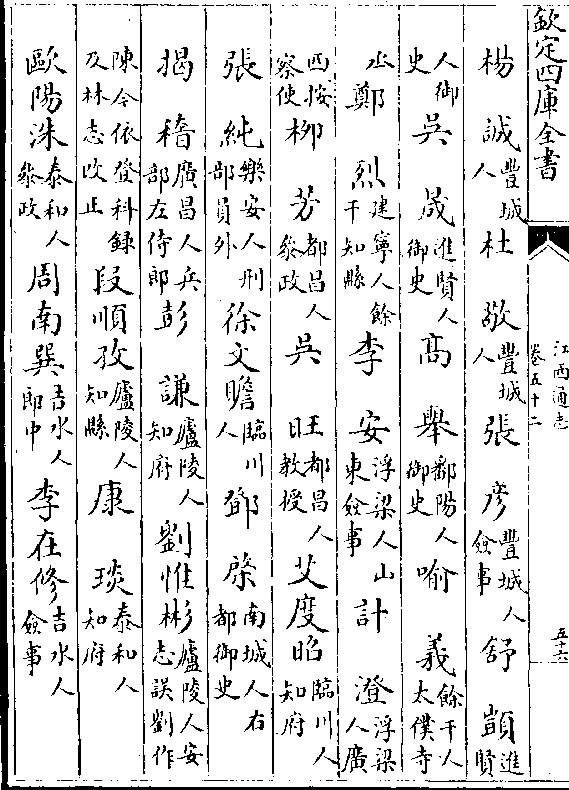 欽定四庫全書
江西通志
卷五十二
五十六
楊 誠豐城人杜 敬豐城人張 彦豐城人僉事舒 顗進賢
人御史吳 晟進賢人御史髙 舉鄱陽人御史喻 義餘干人太僕寺
丞鄭 烈建寧人餘干知縣李 安浮梁人山東僉事計 澄浮梁人廣
西按察使柳 芳都昌人參政吳 旺都昌人教授艾度昭臨川人知府
張 純樂安人刑部員外徐文瞻臨川人鄧 棨南城人右都御史
揭 稽廣昌人兵部左侍郎彭 謙廬陵人知府劉惟彬廬陵人安志誤劉作
陳今依登科録及林志改正段順孜廬陵人知縣康 琰泰和人知府
歐陽洙泰和人參政周南巽吉水人郎中李在修吉水人僉事